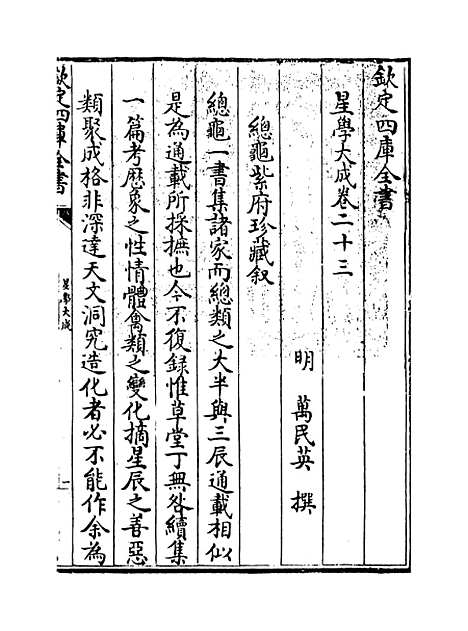 欽定四庫全書
星學大成卷二十三
明　萬民英　撰
總龜紫府珍藏叙
總龜一書集諸家而總類之大半與三辰通載相似
是為通載所採摭也今不復録惟草堂丁無咎續集
一篇考厯象之性情體禽類之變化摘星辰之善惡
類聚成格非深達天文洞究造化者必不能作余為
欽定四庫全書
星學大成
一